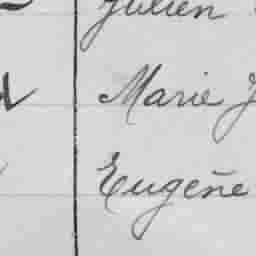 Julien
Marie J
Eugène